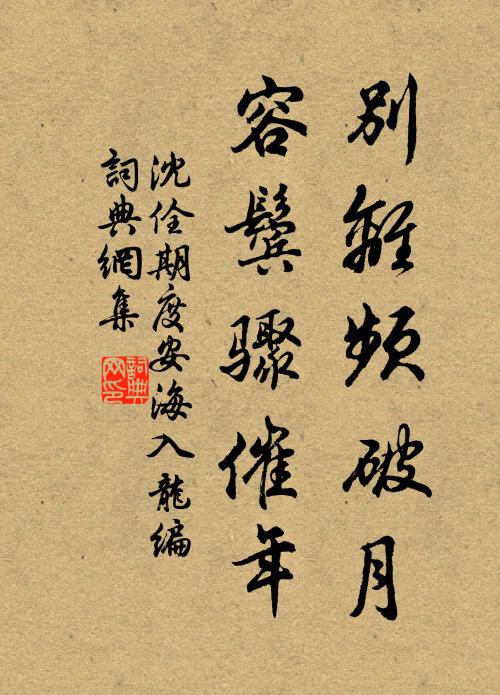 別離頻破月
容鬢驟催年
沈佺期度安海入龍編
詞典網集
詞典
网印